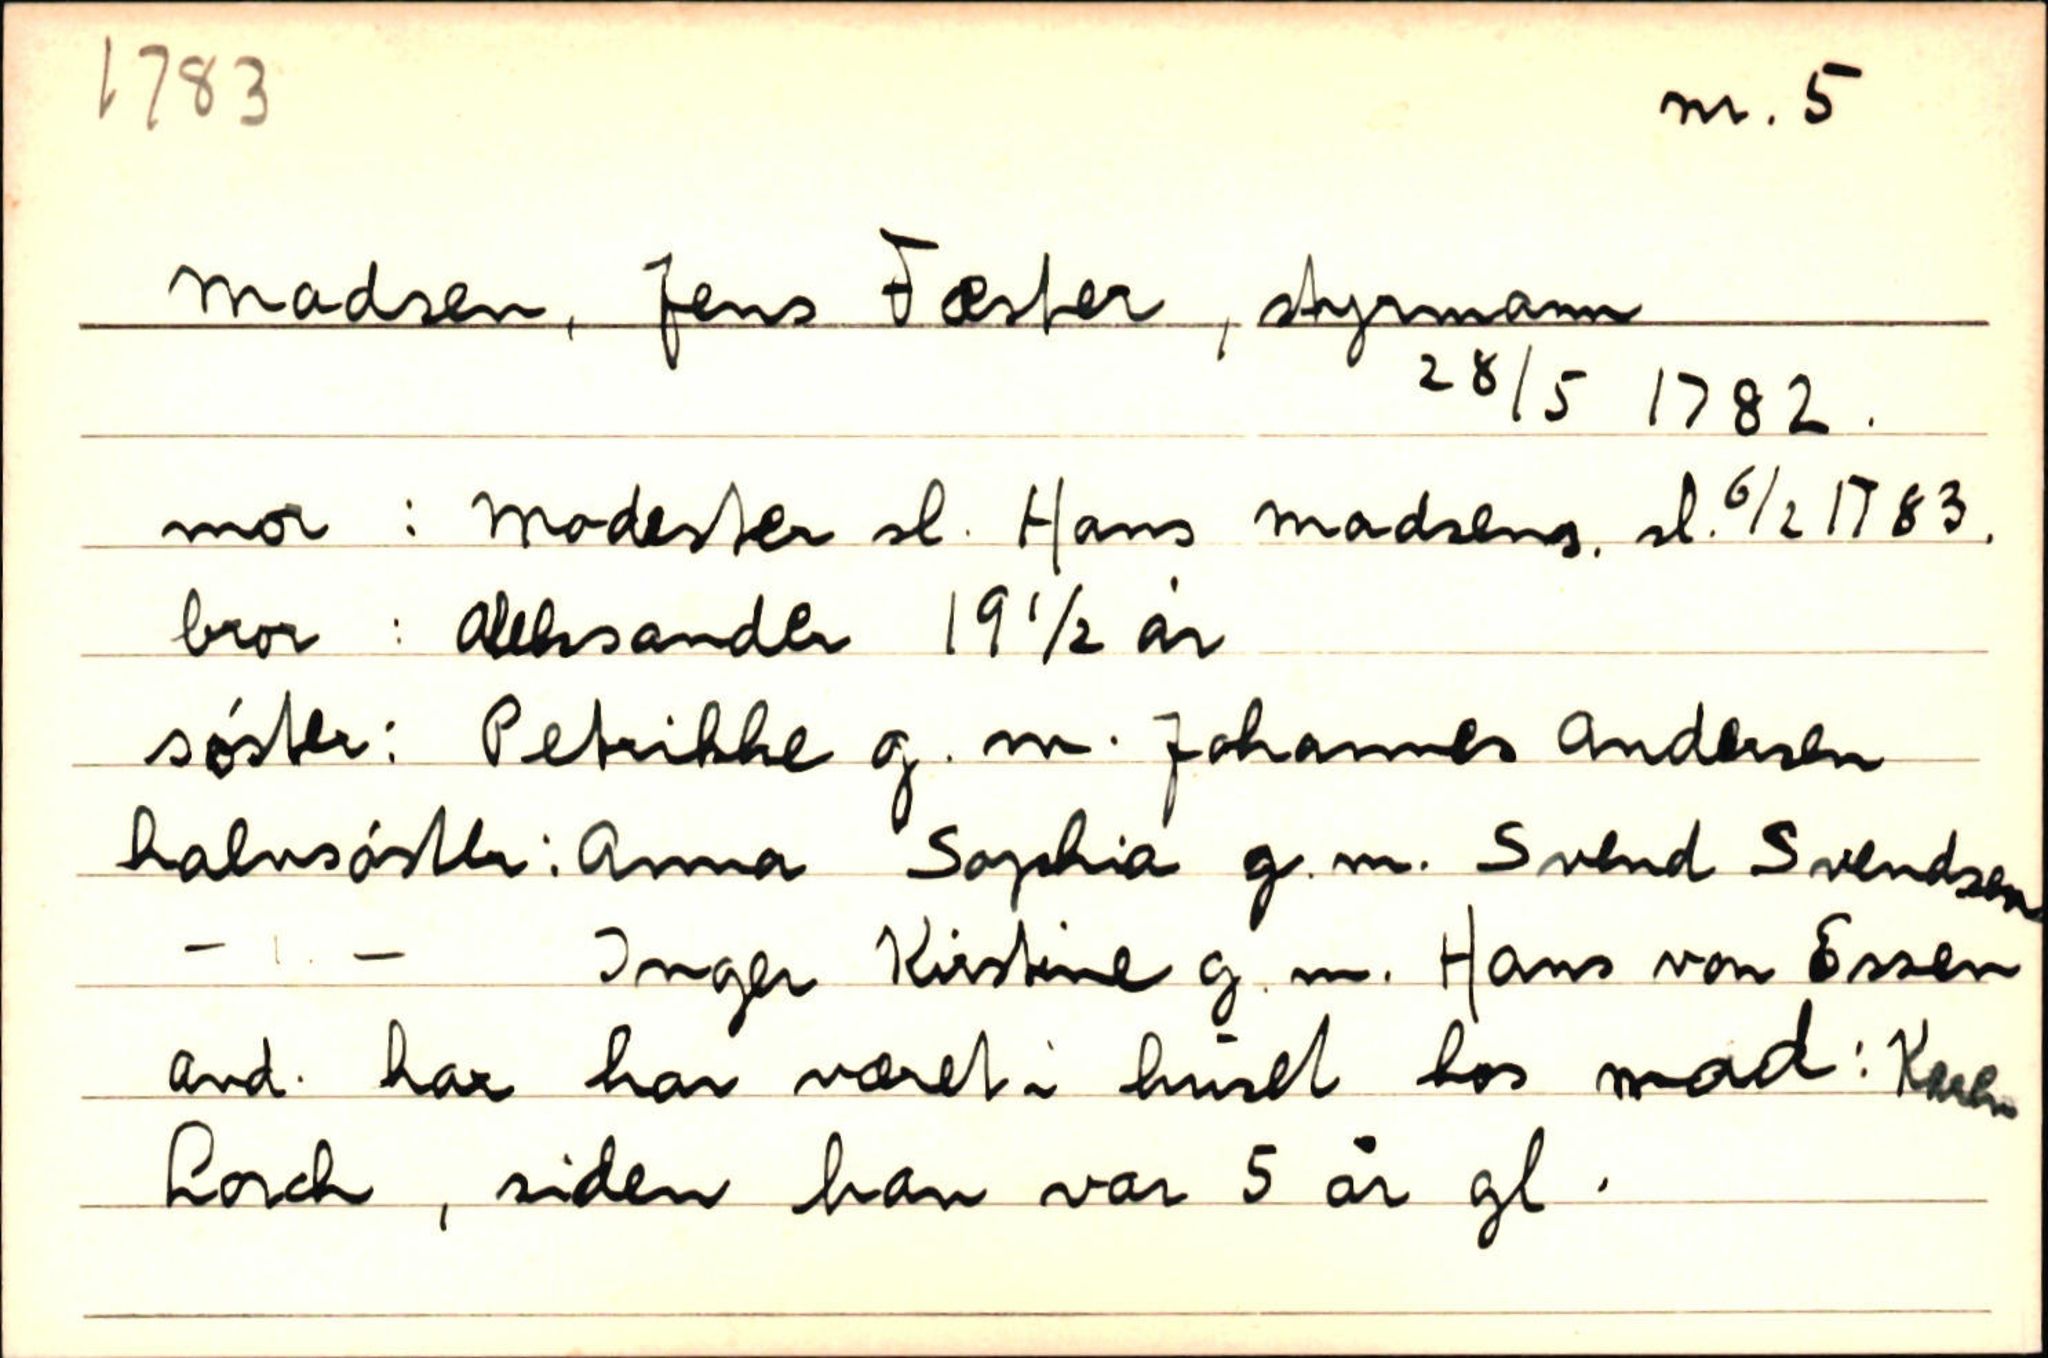 1783 nr. 5
Madsen, Jens Fæster, styrmann
28/5 1782.
mor : Modester sl. Hans Madsens. sl. 6/2 1783.
bror : Aleksander 19 1/2 år
søster: Petrikke g. m. Johannes Andersen
halvsøster: Anna Sophia g. m. Svend Svendsen
- " - Inger Kirstine g. m. Hans von Essen
avd. har han været i huset hos mad: Karen
Lorck, siden han var 5 år gl.